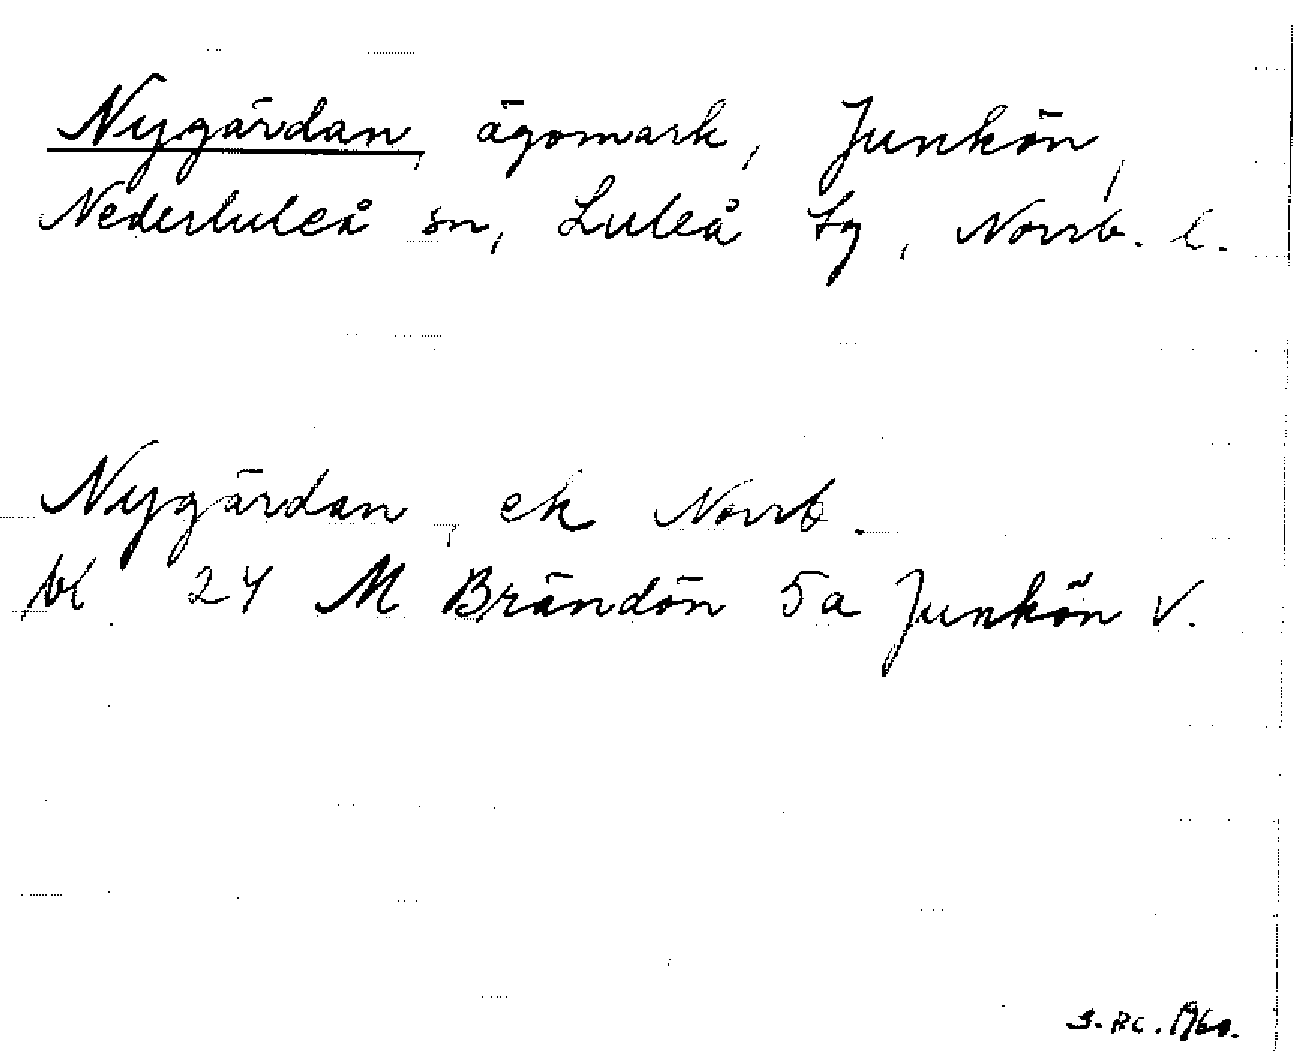 Nygärdan, ägomark, Junkön,
Nederluleå sn, Luleå tg, Norrb. l.
Nygärdan, ek Norrb.
bl 24 M Brändön 5a Junkön V.
1960.